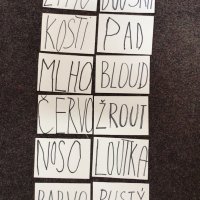 KOSTI PAD
MLHO BLOUD
ČERVO ŽROUT
NOSO LOUTKA
BARVO PUSTÝ